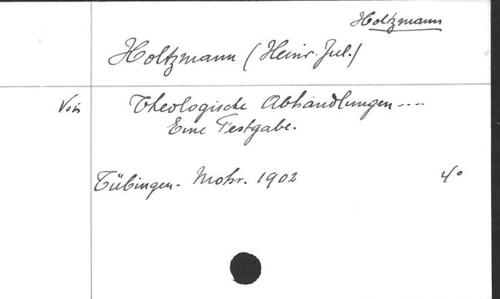 Holtzmann
Holtzmann (Heinr. Jul.)
Theologische Abhandlungen ....
Eine Festgabe.
Tübingen. Mohr. 1902